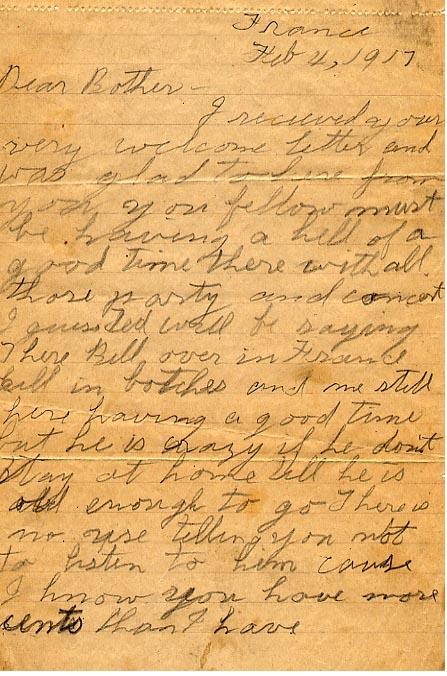 France
Feb 4, 1917
Dear Bother –
I recieved your
very welcome letter and
was glad to here from
you you fellow must
be having a hell of a
good time there with all
those party and concert
I guess Ted will be saying
There Bill over in France
kill in botches and me still
here having a good time
but he is crazy if he dont
stay at home till he is
old enough to go There is
no use telling you not
to listen to him cause
I know you have more
cents than I have